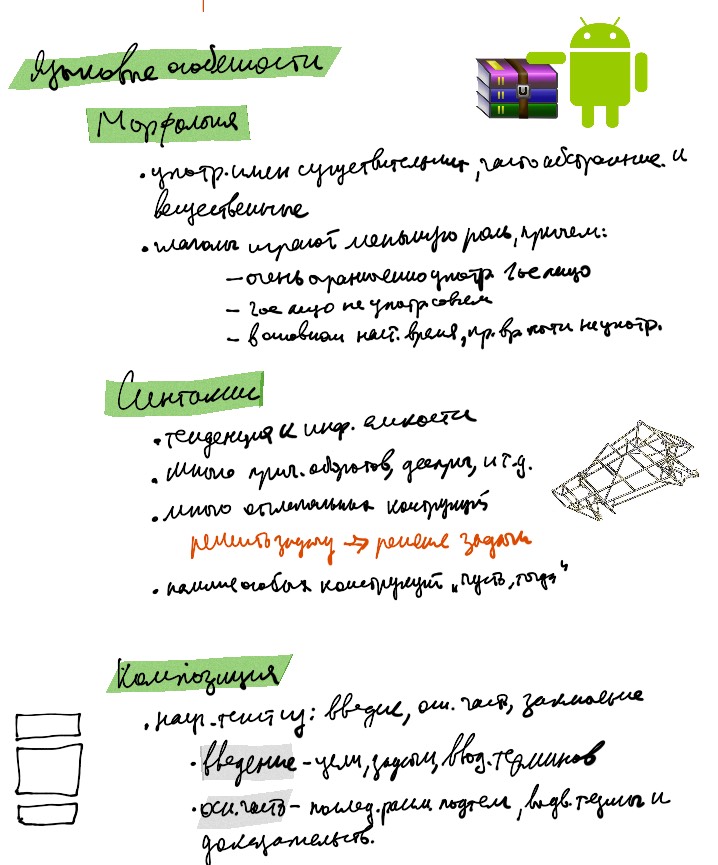 Языковые особенности
Морфология
• употр. имен существительных, часто абстрактные. и
вещественные
• глаголы играют меньшую роль, причем:
– очень ограниченно употр. 1ое лицо
– 2ое лицо не употр совсем
– в основном наст. время, пр. вр почти не употр.
Синтаксис
• тенденция к инф. емкости
• много прич. оборотов, дееприч, и т.д.
• много отглагольных конструкций
решить задачу → решение задачи
• наличие особых конструкций „пусть, тогда"
Композиция
• науч. текст из: введение, осн. часть, заключение
• введение – цели, задачи, ввод. терминов
• осн. часть – послед. раскр. подтем, выдв. тезисы и
доказательств.